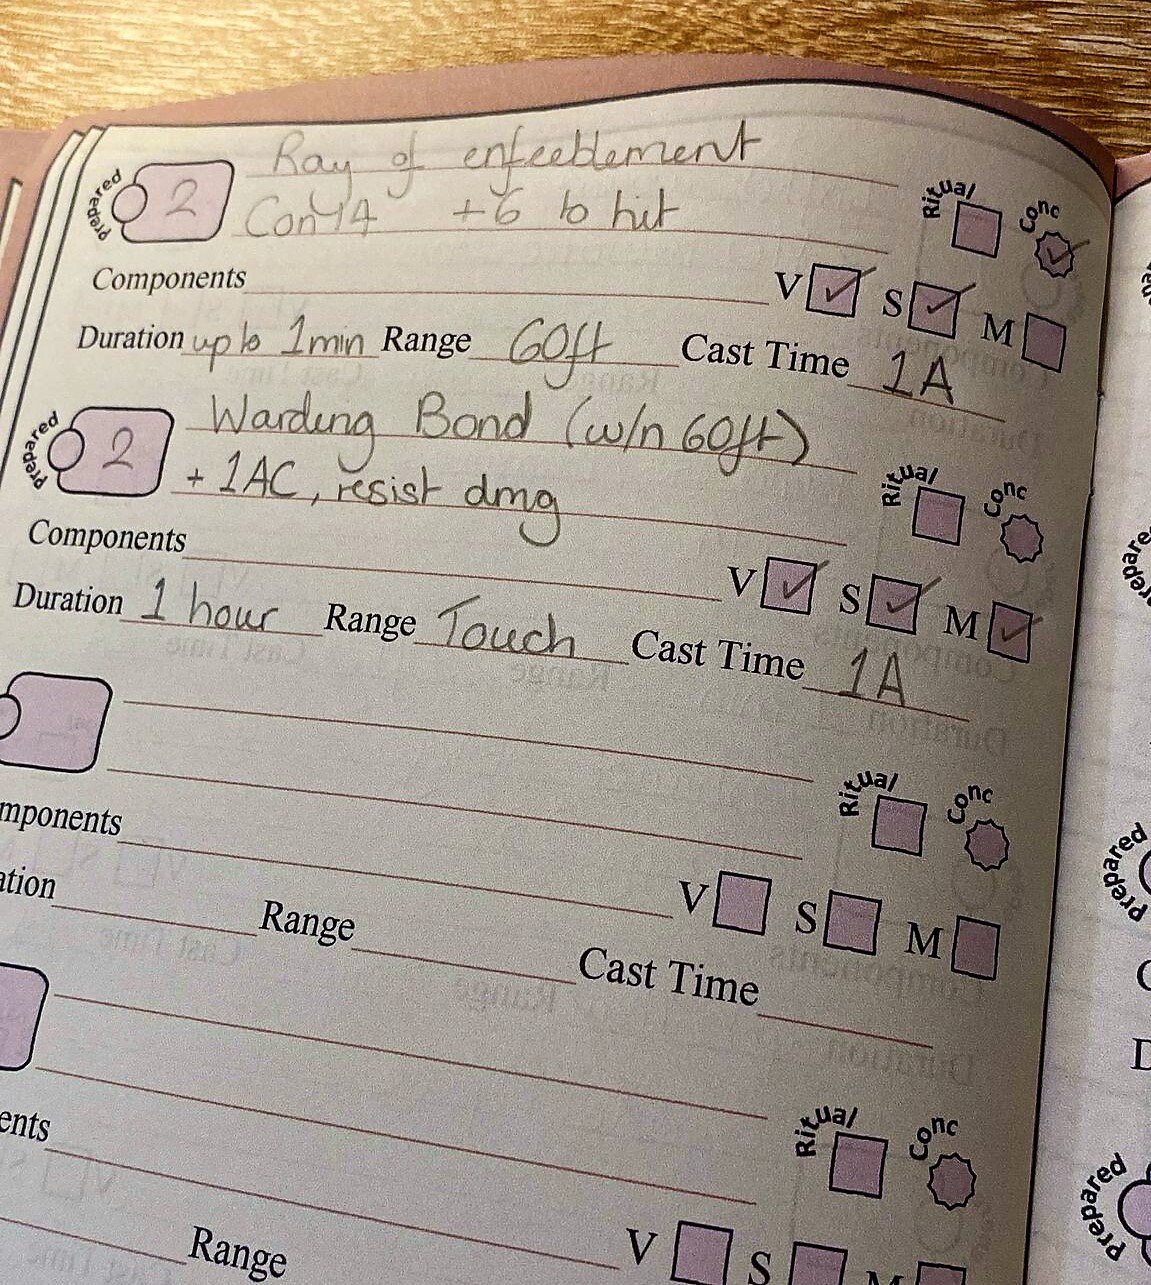 Ray of enfeeblement
prepared 2 Con 14 +6 to hit Ritual Conc
Components V S M
Duration up to 1min Range 60ft Cast Time 1A
Warding Bond (w/n 60ft)
prepared 2 +1AC, resist dmg Ritual Conc
Components V S M
Duration 1 hour Range Touch Cast Time 1A
Ritual Conc
mponents V S M
ation Range Cast Time
Ritual Conc
ents V S M
Range
prepared
prepared